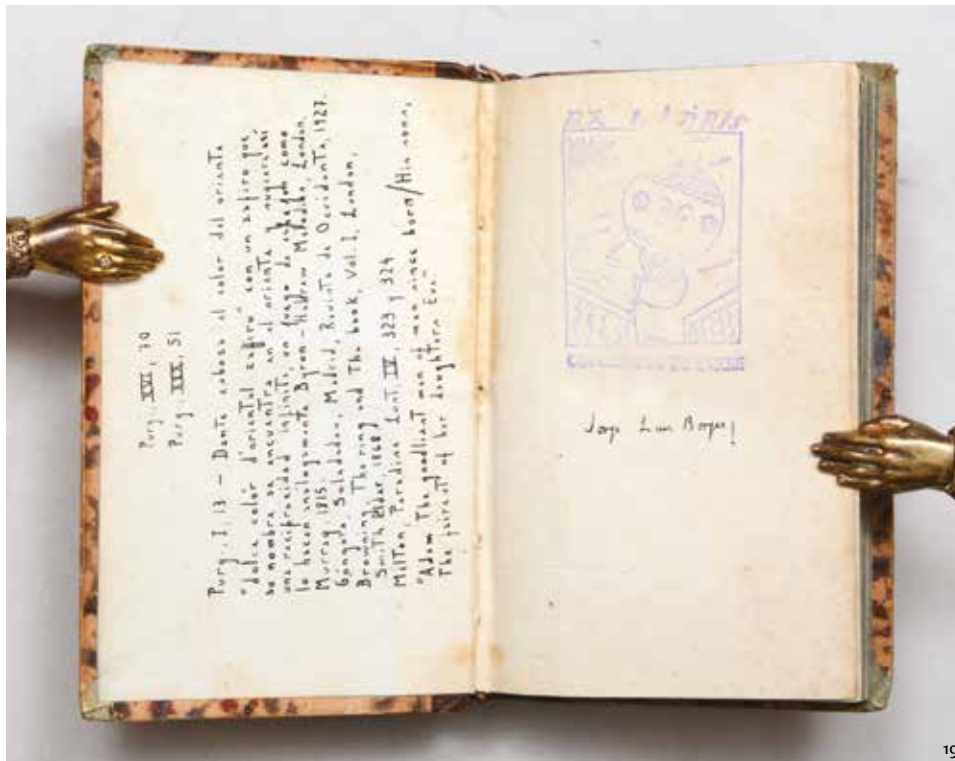 Purg. XVI, 70
Purg. XIX, 51
Purg. I, 13 – Dante esboza el color del oriente
"dolce color d'oriental zafiro" con un zafiro que,
su nombre se encuentra en el oriente y sugiere así
una reciprocidad infinita, un juego de como
lo hacen analogamente Byron – Hebrew Melodies, London,
Murray, 1815.
Góngora, Soledades, Madrid, Revista de Occidente, 1927.
Browning, The ring and The book, Vol. I, London,
Smith, Elder, 1868]
Milton, Paradise Lost, IV, 323 y 324
"Adam The goodliest man of men since born/His sons,
The fairest of her daughters Eve"
EX LIBRIS
Jorge Luis Borges
19